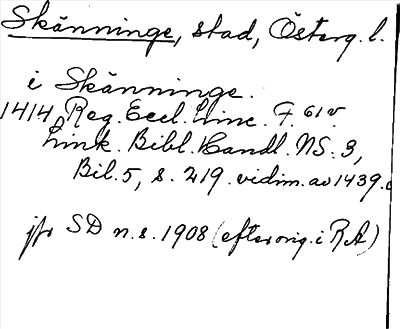 Skänninge, stad, Österg. l.
i Skänninge.
1414 Reg. Eccl. Linc. F. 61 v.
Link. Bibl. Handl. NS. 3,
Bil. 5, s. 219. vidim. av 1439.
jfr SD n.s. 1908 (efter orig. i RA)